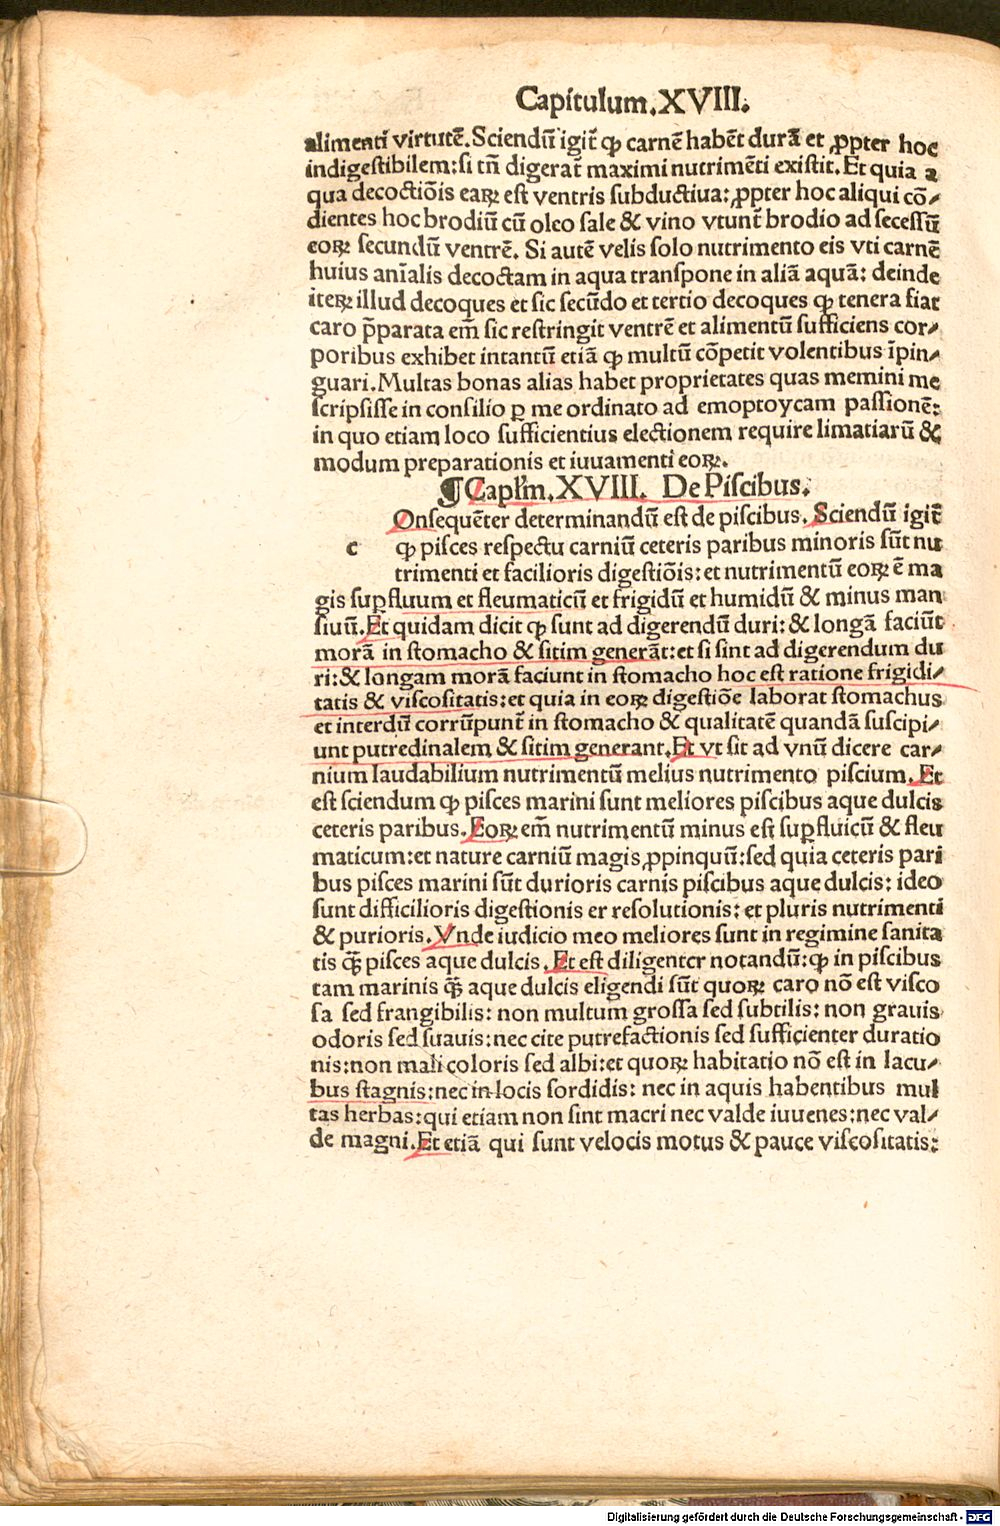 Capitulum.XVIII.
alimenti virtutē.Sciendū igit̄ ꝙ carnē habēt durā et ꝓpter hoc
indigestibilem:si tn̄ digerat̄ maximi nutrimēti existit.Et quia a
qua decoctiōis eaꝝ est ventris subductiua:ꝓpter hoc aliqui cō⸗
dientes hoc brodiū cū oleo sale & vino vtunt̄ brodio ad secessū
eoꝝ secundū ventrē. Si autē velis solo nutrimento eis vti carnē
huius aīalis decoctam in aqua transpone in aliā aquā: deinde
iteꝝ illud decoques et sic secūdo et tertio decoques ꝙ tenera fiat
caro p̄parata em̄ sic restringit ventrē et alimentū sufficiens cor⸗
poribus exhibet intantū etiā ꝙ multū cōpetit volentibus īpin⸗
guari.Multas bonas alias habet proprietates quas memini me
scripsisse in consilio ꝑ me ordinato ad emoptoycam passionē:
in quo etiam loco sufficientius electionem require limatiarū &
modum preparationis et iuuamenti eoꝝ.
¶ Capl̄m.XVIII. De Piscibus.
Onsequēter determinandū est de piscibus. Sciendū igit̄
c ꝙ pisces respectu carniū ceteris paribus minoris sūt nu
trimenti et facilioris digestiōis:et nutrimentū eoꝝ ē ma
gis suꝑfluum et fleumaticū et frigidū et humidū & minus man
siuū.Et quidam dicit ꝙ sunt ad digerendū duri:& longā faciūt
morā in stomacho & sitim generāt:et si sint ad digerendum du
ri:& longam morā faciunt in stomacho hoc est ratione frigidi⸗
tatis & viscositatis:et quia in eoꝝ digestiōe laborat stomachus
et interdū corrūpunt̄ in stomacho & qualitatē quandā suscipi⸗
unt putredinalem & sitim generant.Et vt sit ad vnū dicere car⸗
nium laudabilium nutrimentū melius nutrimento piscium. Et
est sciendum ꝙ pisces marini sunt meliores piscibus aque dulcis
ceteris paribus.Eoꝝ em̄ nutrimentū minus est suꝑfluicū & fleu
maticum:et nature carniū magis ꝓpinquū:sed quia ceteris pari
bus pisces marini sūt durioris carnis piscibus aque dulcis: ideo
sunt difficilioris digestionis er resolutionis: et pluris nutrimenti
& purioris.Vnde iudicio meo meliores sunt in regimine sanita
tis qꝫ̄ pisces aque dulcis.Et est diligenter notandū:ꝙ in piscibus
tam marinis qꝫ̄ aque dulcis eligendi sūt quoꝝ caro nō est visco
sa sed frangibilis: non multum grossa sed subtilis: non grauis
odoris sed suauis:nec cite putrefactionis sed sufficienter duratio
nis:non mali coloris sed albi:et quoꝝ habitatio nō est in lacu⸗
bus stagnis:nec in locis sordidis: nec in aquis habentibus mul
tas herbas:qui etiam non sint macri nec valde iuuenes:nec val⸗
de magni.Et etiā qui sunt velocis motus & pauce viscositatis:
Digitalisierung gefördert durch die Deutsche Forschungsgemeinschaft - DFG